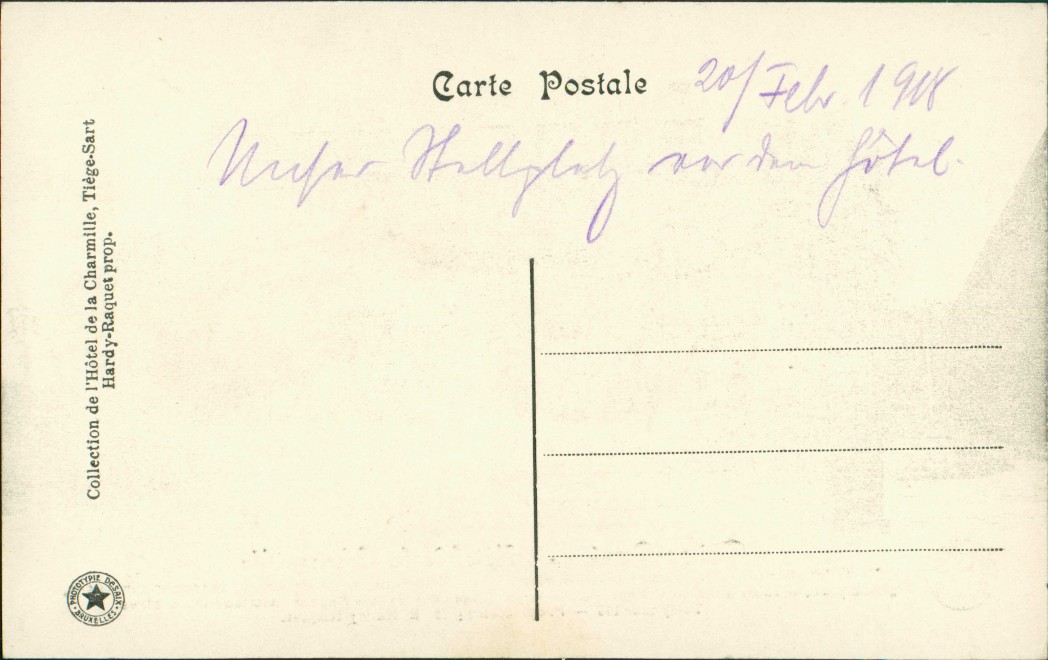 Carte Postale
20/Febr. 1918
Unser Stellplatz vor dem Hôtel.
Collection de l'Hôtel de la Charmille, Tiège-Sart
Hardy-Raquet prop.
PHOTOTYPIE DESAIX
BRUXELLES